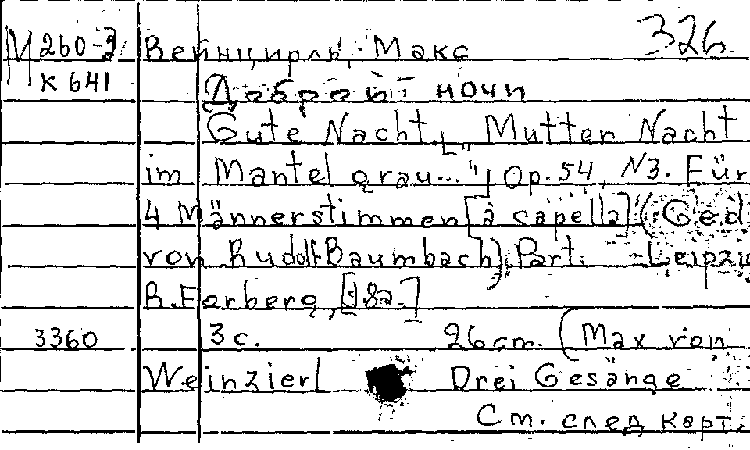 М 260-3 Вейнцирль, Макс 326
К 641 Доброй ночи
Gute Nacht [„Mutter Nacht
im Mantel grau..."] Op. 54, N3. Für
4 Männerstimmen [a capella] (Ged.
von Rudolf Baumbach). Part. - Leipzig
R. Forberg, [18a.]
3360 3 с. 26 cm. (Max von
Weinzierl Drei Gesänge
См. след карт.